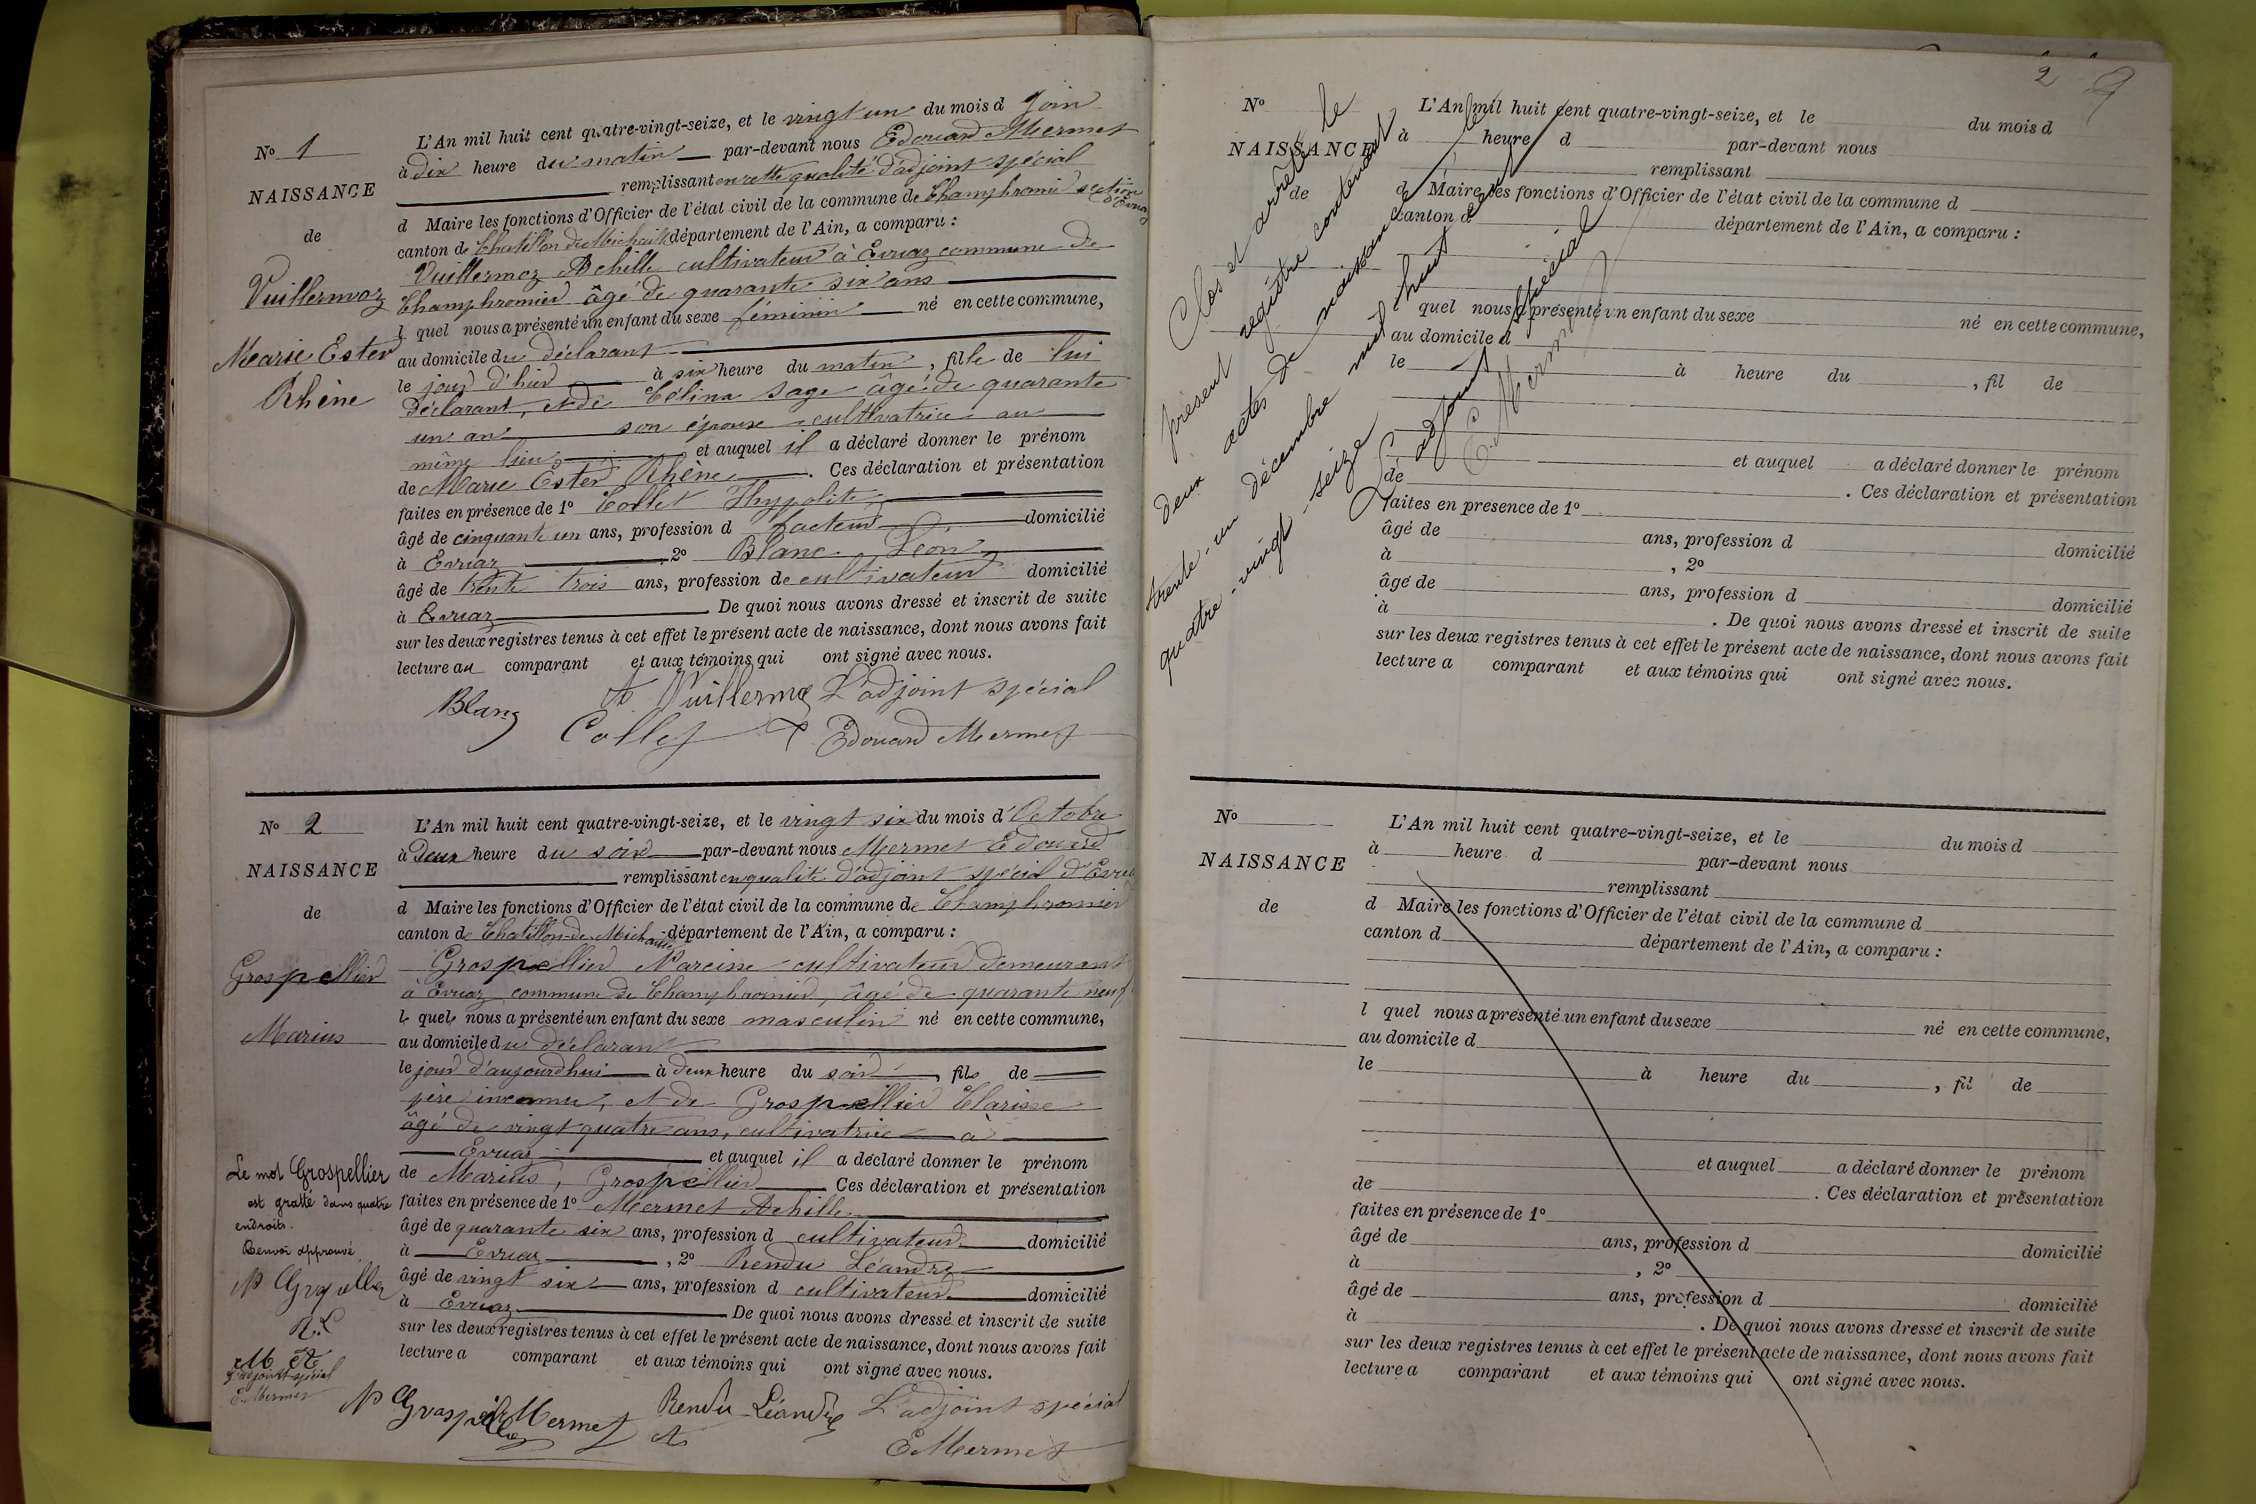 N° 1
NAISSANCE
de
Vuillermoz
Marie Ester
Rhène
L'An mil huit cent quatre-vingt-seize, et le vingt un du mois d Join
à dix heure du matin par-devant nous Edouard Mermet
remplissant en cette qualité d'adjoint spécial
d Maire les fonctions d'Officier de l'état civil de la commune de Champfromier section d'Evuaz
canton de Chatillon de Michaille département de l'Ain, a comparu :
Vuillermoz Achille cultivateur à Evuaz commune de
Champfromier âgé de quarante six ans
l quel nous a présenté un enfant du sexe féminin né en cette commune,
au domicile du déclarant
le jour d'hier à six heure du matin, fille de lui
déclarant, et de Célina Sage âgé de quarante
un an son épouse cultivatrice au
même lieu et auquel il a déclaré donner le prénom
de Marie Ester Rhène. Ces déclaration et présentation
faites en présence de 1° Collet Hypolite
âgé de cinquante un ans, profession d facteur domicilié
à Evuaz 2° Blanc Léon
âgé de trente trois ans, profession de cultivateur domicilié
à Evuaz De quoi nous avons dressé et inscrit de suite
sur les deux registres tenus à cet effet le présent acte de naissance, dont nous avons fait
lecture au comparant et aux témoins qui ont signé avec nous.
Blanc A Vuillermoz L'adjoint spécial
Collet Edouard Mermet
N° 2
NAISSANCE
de
Grospellier
Marius
L'An mil huit cent quatre-vingt-seize, et le vingt six du mois d'Octobre
à Deux heure du soir par-devant nous Mermet Edouard
remplissant en qualité d'adjoint spécial d'Evuaz
d Maire les fonctions d'Officier de l'état civil de la commune de Champfromier
canton de Chatillon-de-Michaille département de l'Ain, a comparu :
Grospellier Narcisse cultivateur demeurant
à Evuaz commune de Champfromier, âgé de quarante neuf
le quel nous a présenté un enfant du sexe masculin né en cette commune,
au domicile du déclarant
le jour d'aujourdhui à deux heure du soir, fils de
père inconnu, et de Grospellier Clarisse
âgé de vingt quatre ans, cultivatrice à
Evuaz et auquel il a déclaré donner le prénom
de Marius, Grospellier Ces déclaration et présentation
faites en présence de 1° Mermet Achille
âgé de quarante six ans, profession d cultivateur domicilié
à Evuaz, 2° Rendu Léandre
âgé de vingt six ans, profession d cultivateur domicilié
à Evuaz De quoi nous avons dressé et inscrit de suite
sur les deux registres tenus à cet effet le présent acte de naissance, dont nous avons fait
lecture a comparant et aux témoins qui ont signé avec nous.
Le mot Grospellier
est gratté dans quatre
endroits.
Renvoi approuvé
N Grospellier
R.L
M A
L'adjoint spécial
E. Mermet
N Grospellier Mermet A Rendu Léandre L'adjoint spécial
E Mermet
2
N°
NAISSANCE
de
L'An mil huit cent quatre-vingt-seize, et le du mois d
à heure d par-devant nous
remplissant
d Maire les fonctions d'Officier de l'état civil de la commune d
canton d département de l'Ain, a comparu :
l quel nous a présenté un enfant du sexe né en cette commune,
au domicile d
le à heure du , fil de
et auquel a déclaré donner le prénom
de . Ces déclaration et présentation
faites en presence de 1°
âgé de ans, profession d domicilié
à , 2°
âgé de ans, profession d domicilié
à . De quoi nous avons dressé et inscrit de suite
sur les deux registres tenus à cet effet le présent acte de naissance, dont nous avons fait
lecture a comparant et aux témoins qui ont signé avec nous.
Clos et arrêté le
présent registre contenant
deux actes de naissance le
trente-un décembre mil huit cent
quatre-vingt-seize
L'adjoint spécial
E. Mermet
N°
NAISSANCE
de
L'An mil huit cent quatre-vingt-seize, et le du mois d
à heure d par-devant nous
remplissant
d Maire les fonctions d'Officier de l'état civil de la commune d
canton d département de l'Ain, a comparu :
l quel nous a présenté un enfant du sexe né en cette commune,
au domicile d
le à heure du , fil de
et auquel a déclaré donner le prénom
de . Ces déclaration et présentation
faites en présence de 1°
âgé de ans, profession d domicilié
à , 2°
âgé de ans, profession d domicilié
à . De quoi nous avons dressé et inscrit de suite
sur les deux registres tenus à cet effet le présent acte de naissance, dont nous avons fait
lecture a comparant et aux témoins qui ont signé avec nous.